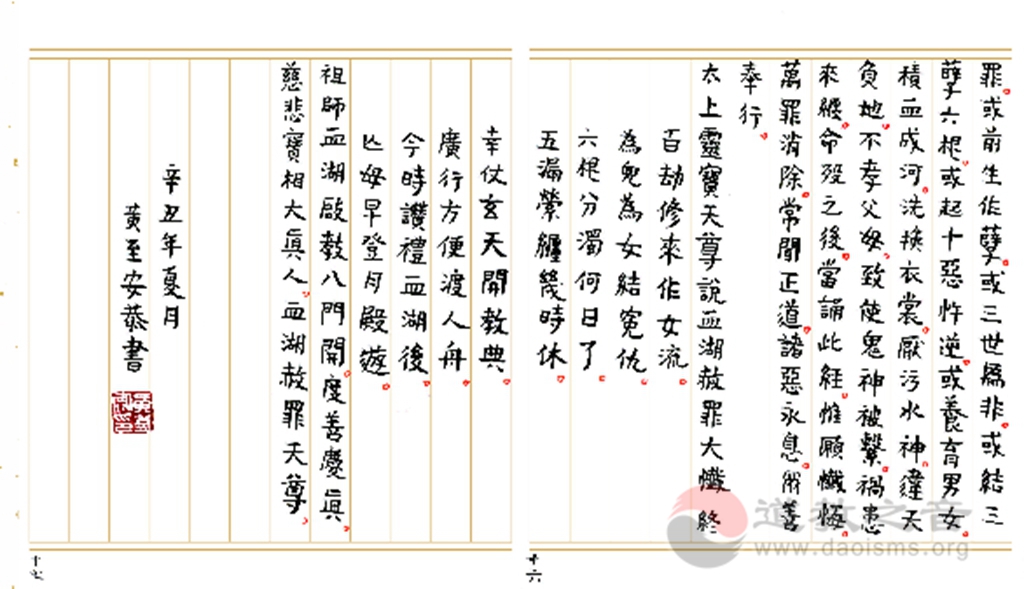 罪或前生作孽或三世爲非或結三
孽六根或起十惡忤逆或養育男女
積血成河洗換衣裳厭污水神違天
負地不孝父母致使鬼神被繫禍患
來纏命歿之後當誦此経惟願懺悔
萬罪消除常聞正道諸惡永息衆善
奉行
太上靈寶天尊說血湖赦罪大懺終
百劫修來作女流
為兒為女結冤仇
六根分濁何日了
五漏縈纏幾時休
幸仗玄天開教典
廣行方便渡人舟
今時讚禮血湖後
亡母早登月殿遊
祖師血湖啟教八門開度善慶真
慈悲寶相大真人血湖赦罪天尊
辛丑年夏月
黃至安恭書
十六
十七
道教之音
www.daoisms.org